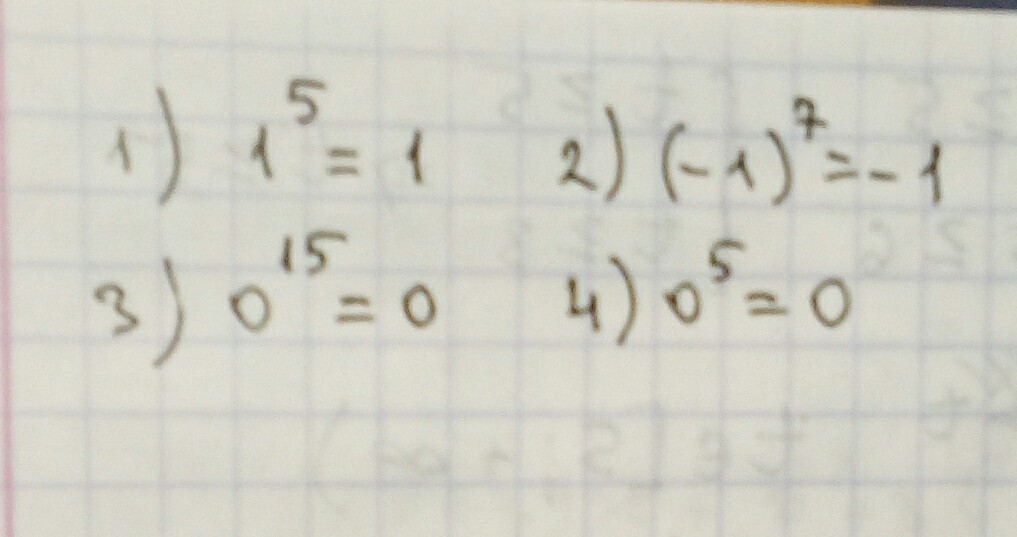 1) 1⁵ = 1 2) (-1)⁷ = -1
3) 0¹⁵ = 0 4) 0⁵ = 0